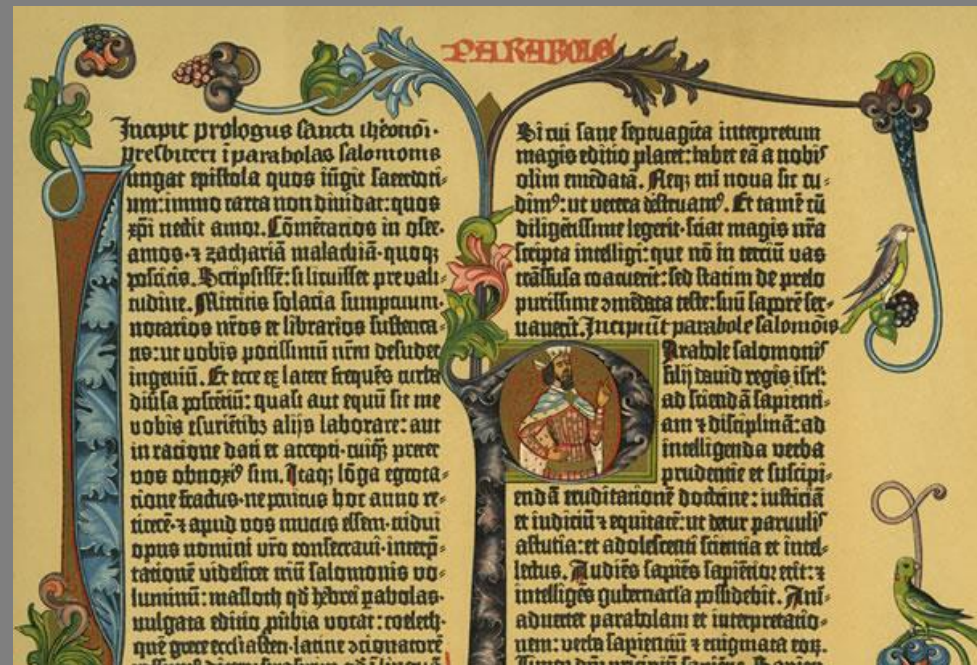 PARABOLE
Incipit prologus sancti iheronimi
presbiteri ī parabolas salomonis
Iungat epistola quos iūgit sacerdoti-
um: immo carta non dividat: quos
xp̄i nectit amor. Cōmētarios in osee.
amos. ⁊ zachariā malachiā. quoqꝫ
poscitis. Scripsissē: si licuisset pre vali-
tudine. Mittitis solacia sumptuum.
notarios nr̄os et librarios sustenta-
tis: ut vobis potissimū nr̄m desudet
ingeniū. Et ecce ex latere frequēs turba
diūsa poscētiū: quasi aut equū sit me
vobis esuriētibꝫ alijs laborare: aut
in ratione dati et accepti. cuiqꝫ preter
vos obnoxiꝰ sim. Itaqꝫ lōga egrota-
tione fractus. ne penitus hoc anno re-
ticerē. ⁊ apud vos mutus essem. tridui
opus nomini vr̄o consecravi. interp̄-
tationē videlicet triū salomonis vo-
luminū: masloth qd̄ hebrei pabolas.
vulgata editio pūbia vocat: coeleth.
quē grece ecclīasten. latine ꝯcionatorē
Si cui sane septuagīta interpretum
magis editio placet: habet eā a nobis
olim emēdatā. Neqꝫ eni nova sic cu-
dimꝰ: ut vetera destruamꝰ. Et tamē cū
diligētissime legerit. sciat magis nr̄a
scripta intelligi: que nō in terciū vas
trāsfusa coacuerīt: sed statim de prelo
purissime ꝯmēdata teste: suū saporē ser-
vaverīt. Incipiūt parabole salomōis
Parabole salomonis
filij david regis isrl̄:
ad sciendā sapienti-
am ⁊ disciplinā: ad
intelligenda verba
prudentie et suscipi-
endā eruditationē doctrine: iusticiā
et iudiciū ⁊ equitatē: ut detur parvulis
astutia: et adolescenti scientia et intel-
lectus. Audiēs sapiēs sapiētior erit: ⁊
intelligēs gubernacla possidebit. Ani-
advertet parabolam et interpretatio-
nem: verba sapientiū ⁊ enigmata eoꝝ.